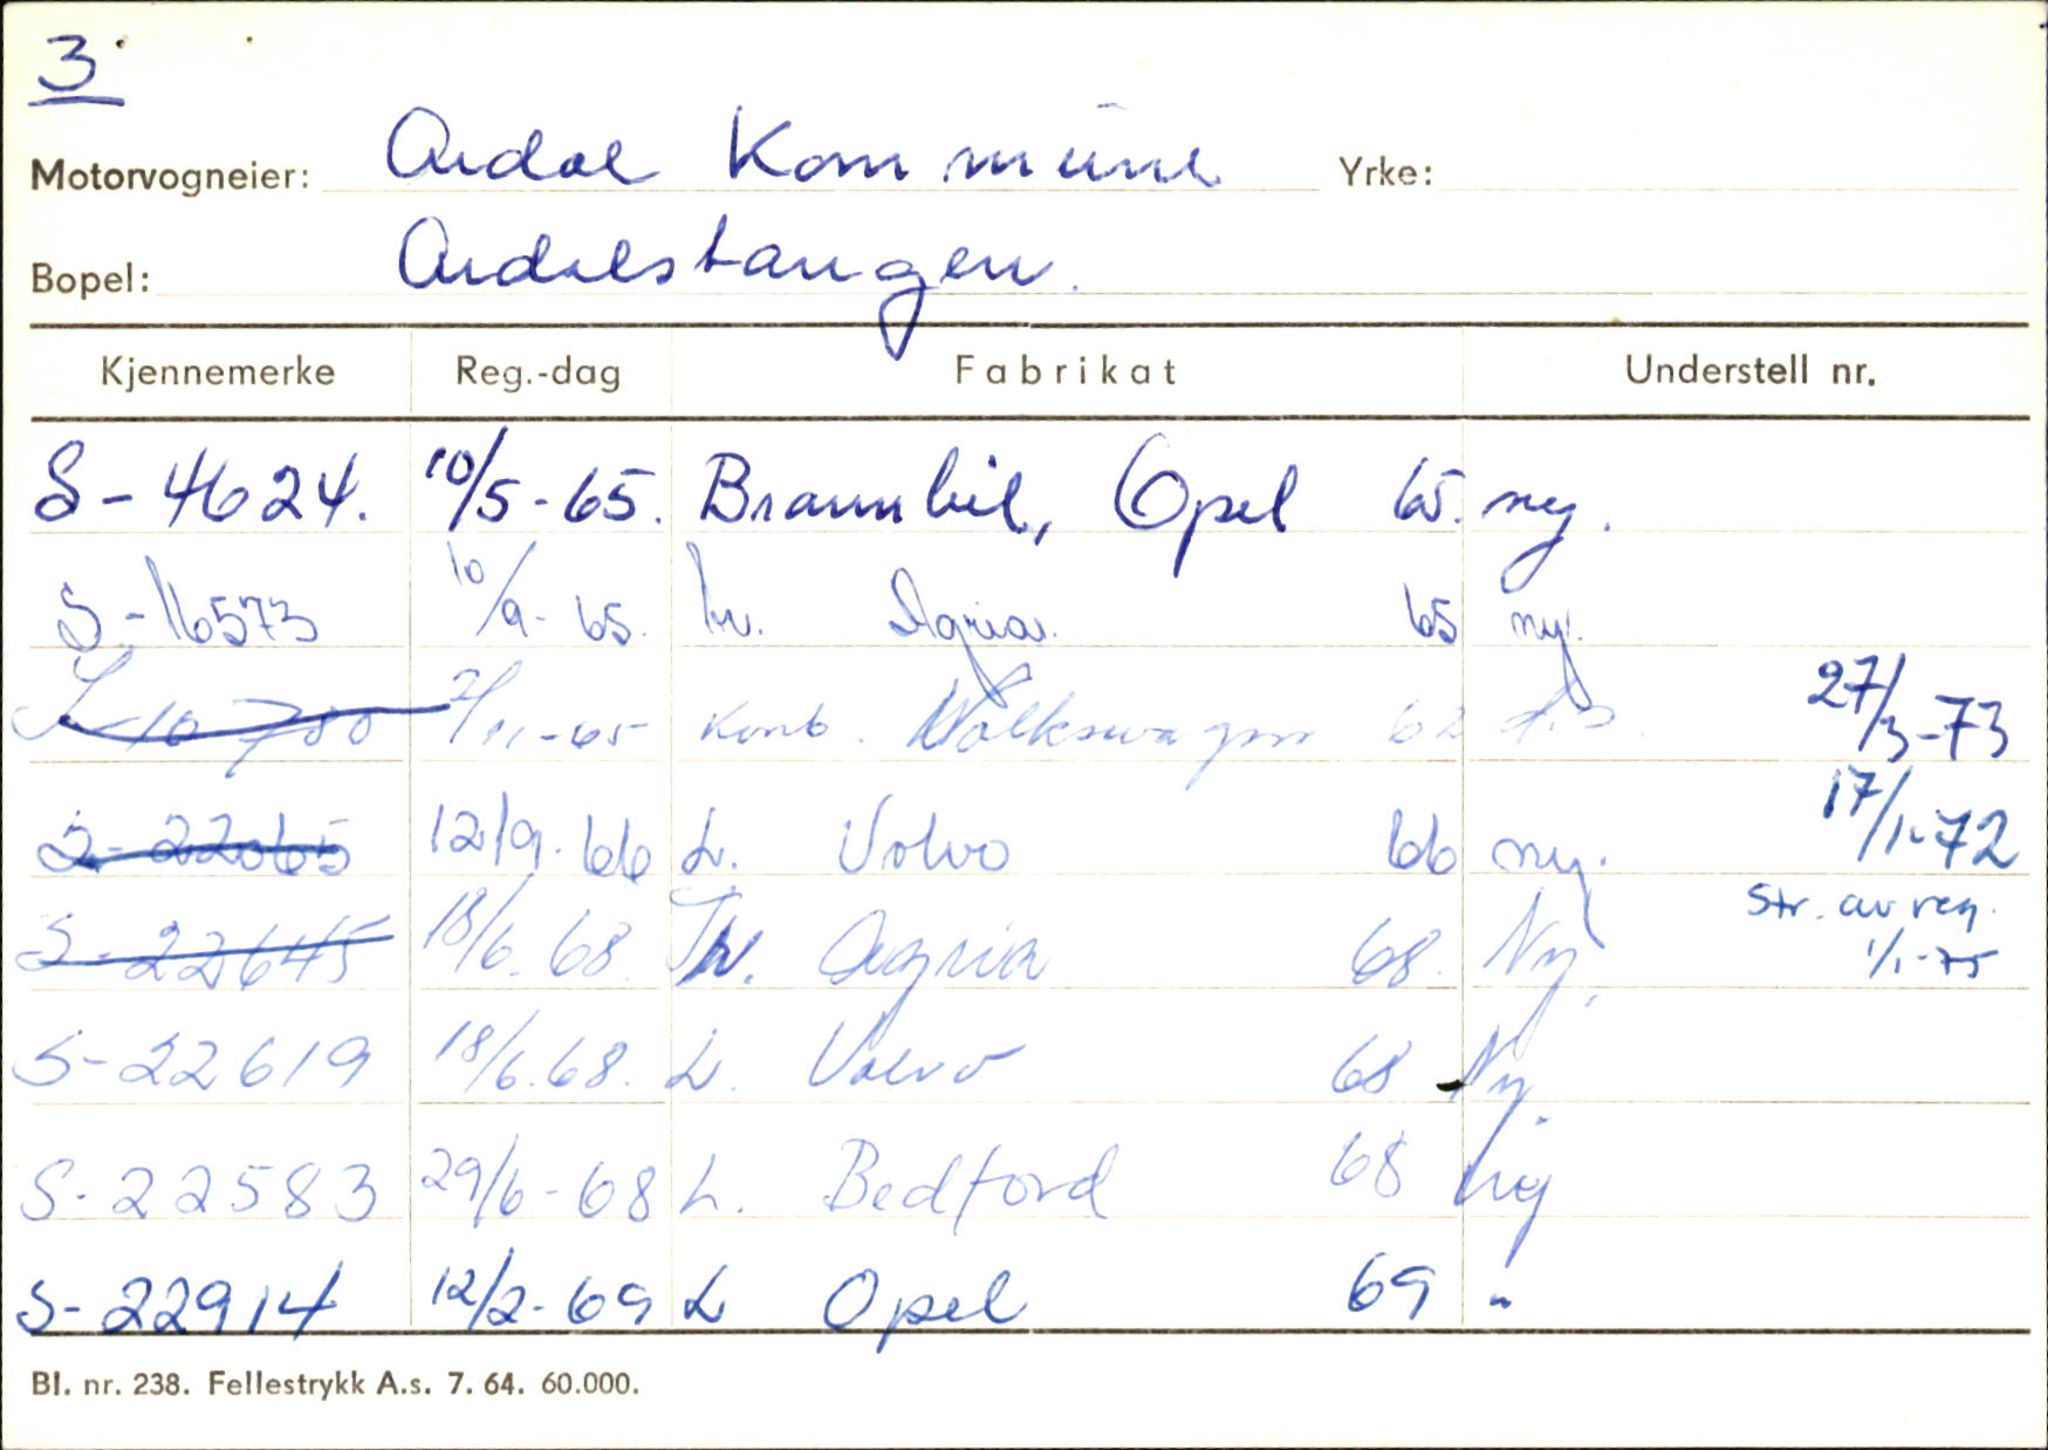 3
Motorvogneier: Ardal Kommune Yrke:
Bopel: Ardalstangen.
Kjennemerke Reg.-dag Fabrikat Understell nr.
S-4624. 10/5-65. Brannbil, Opel 65. ny.
S-16573 10/9-65. tr. Agria. 65 ny.
S-10780 2/11-65 komb. Wolkswagen 62 27/3-73
S-22065 12/9-66 L. Volvo 66 ny. 17/1-72
S-22645 18/6.68. Tr. Agria 68. Ny. Str. av reg. 1/1-75
S-22619 18/6.68. L. Volvo 68 Ny.
S-22583 29/6-68 L. Bedford 68 Ny
S-22914 12/2-69 L Opel 69 "
Bl. nr. 238. Fellestrykk A.s. 7. 64. 60.000.